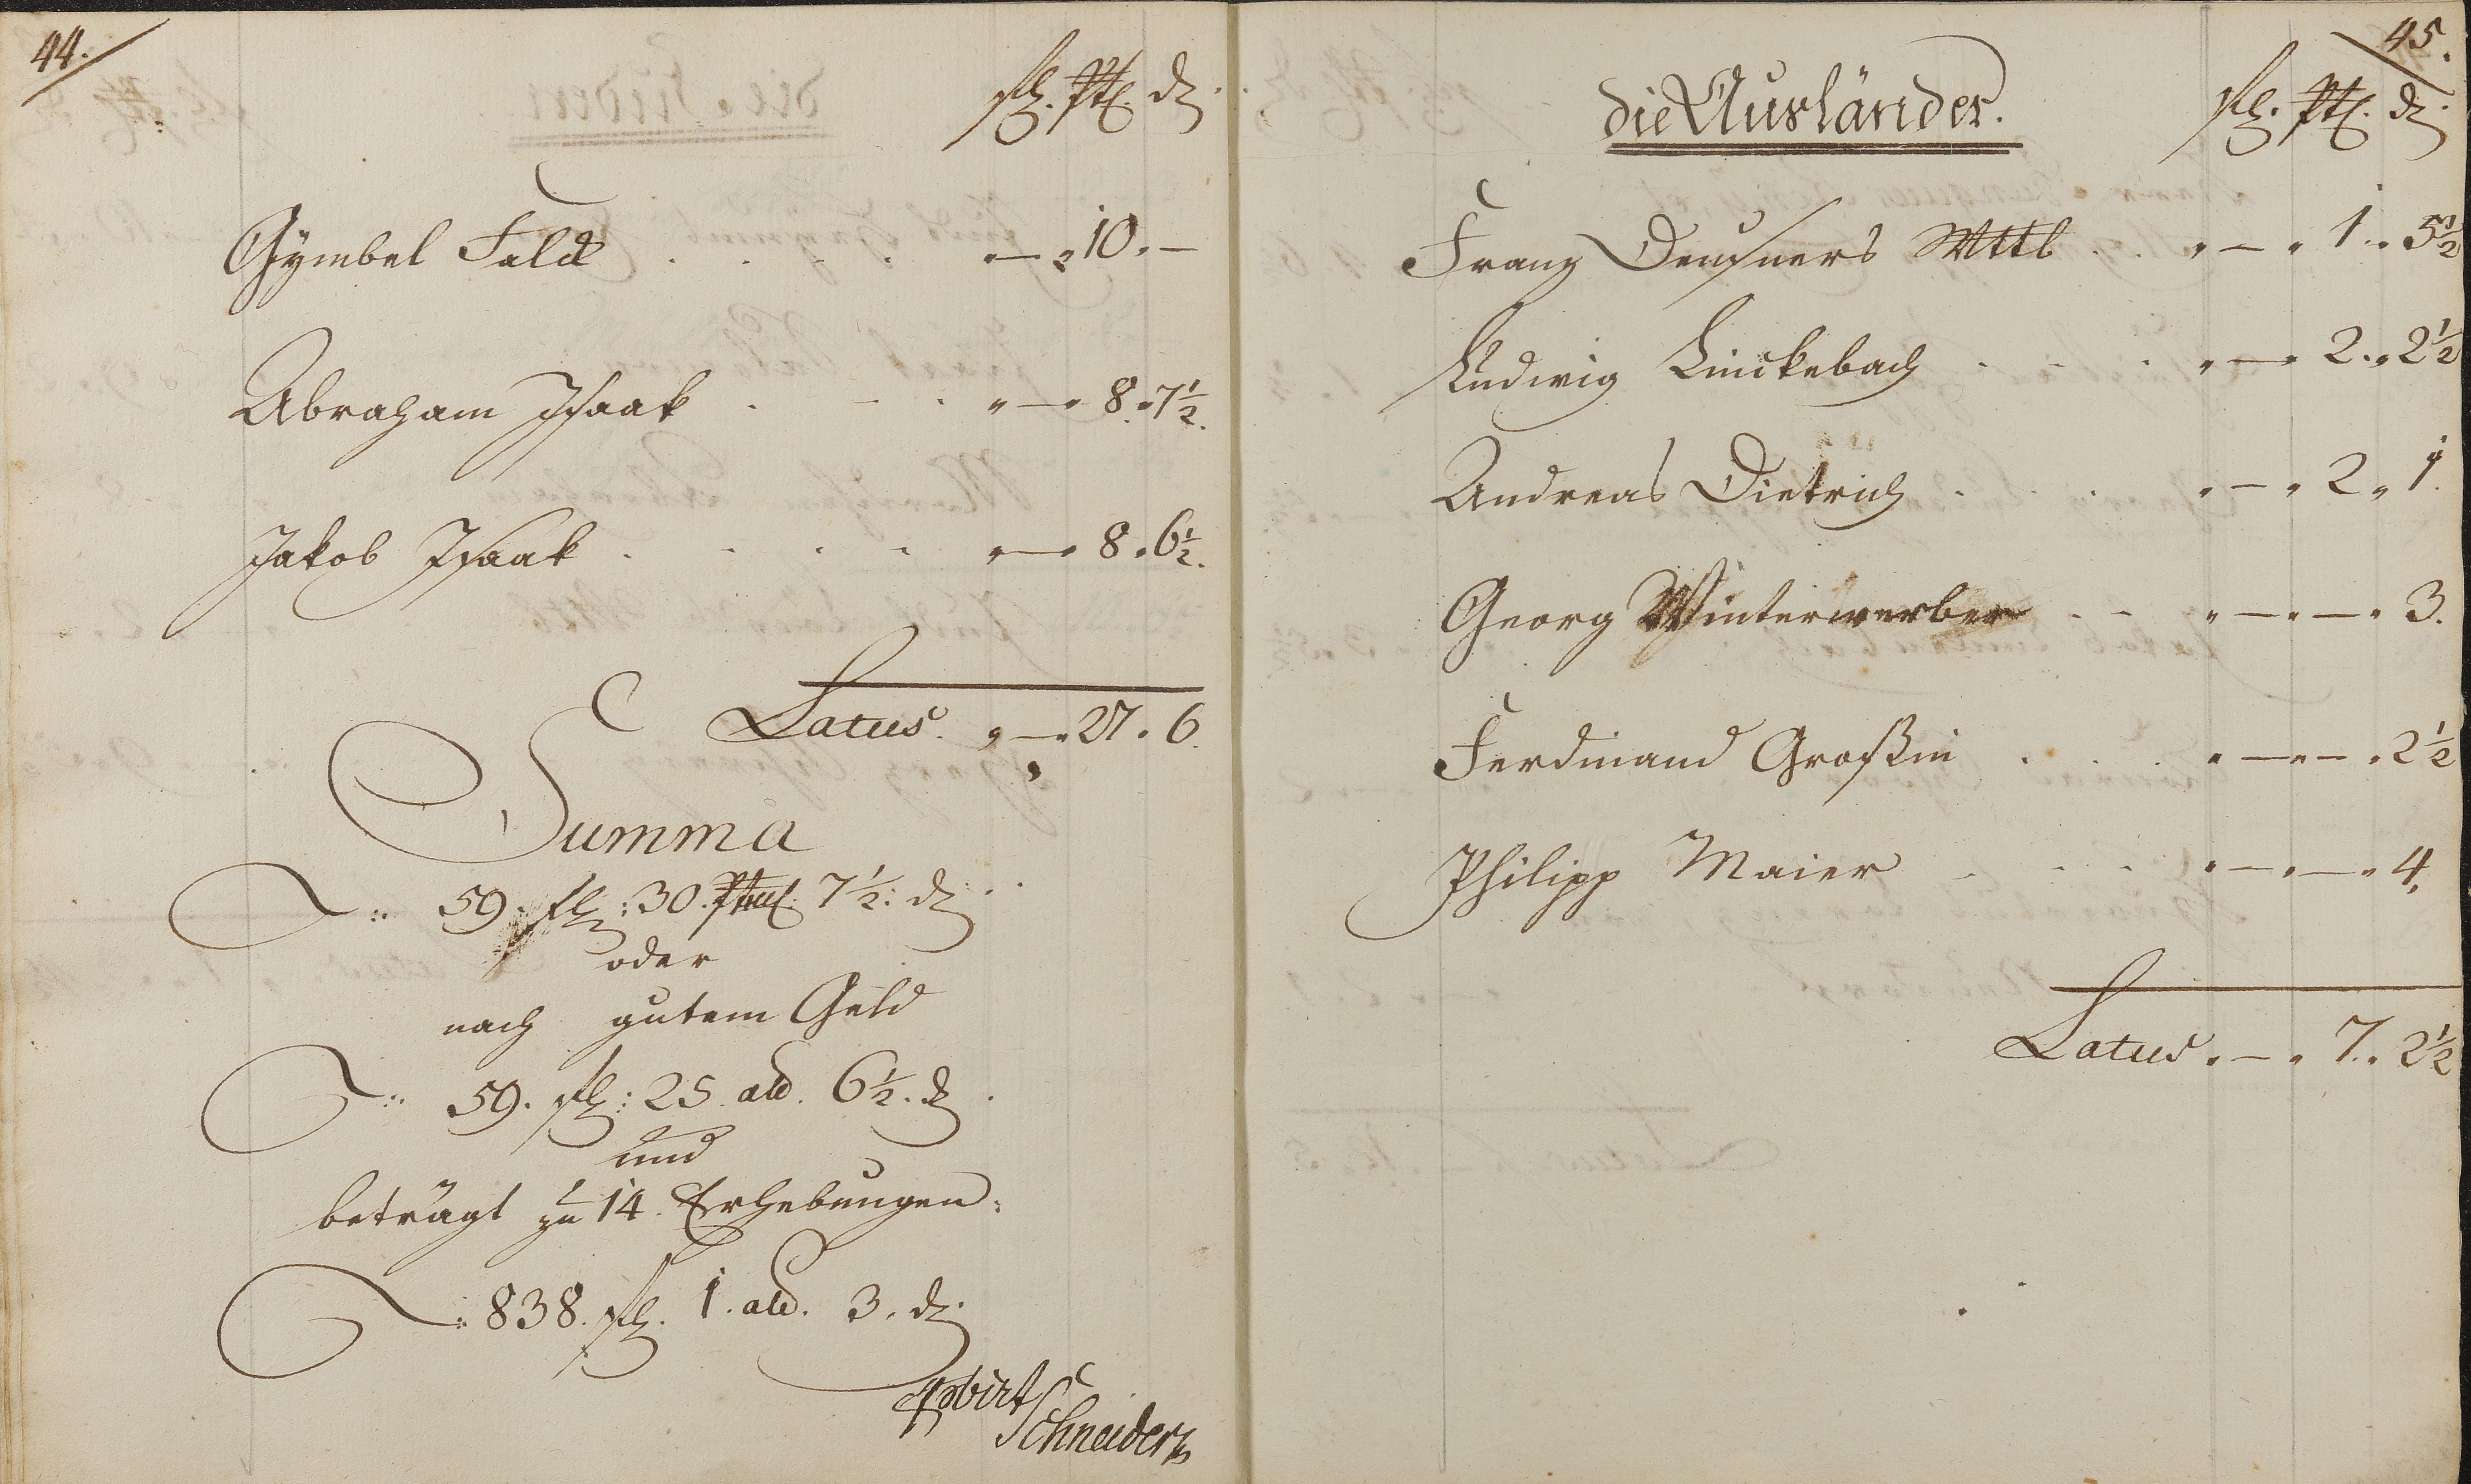 44.
fl. Ptz. d.
Gymbel Falck . . . . „ — „ 10 . —
Abraham Isaak . . . „ — „ 8 . 7½.
Jakob Isaak . . . . „ — „ 8 . 6½.
Latus . „ — „ 27 . 6.
Summa
59 . fl : 30 . 7½ : d.
oder
nach gutem Geld
59 . fl : 25 . alb . 6½ . d.
und
beträgt zu 14 . Erhebungen .
838 . fl . 1 . alb . 3 . d.
Schneider
45.
die Ausländer.
fl. Ptz. d.
Franz Deusners Wttb . . „ — „ 1 . „ 5½
Ludwig Linckebach . . . „ — „ 2 . „ 2½
Andreas Dietrich . . . „ — „ 2 „ 1.
Georg Winterwerber . . „ — „ — „ 3.
Ferdinand Großin . . . „ — „ — „ 2½
Philipp Maier . . . . „ — „ — „ 4.
Latus . „ — „ 7 . „ 2½